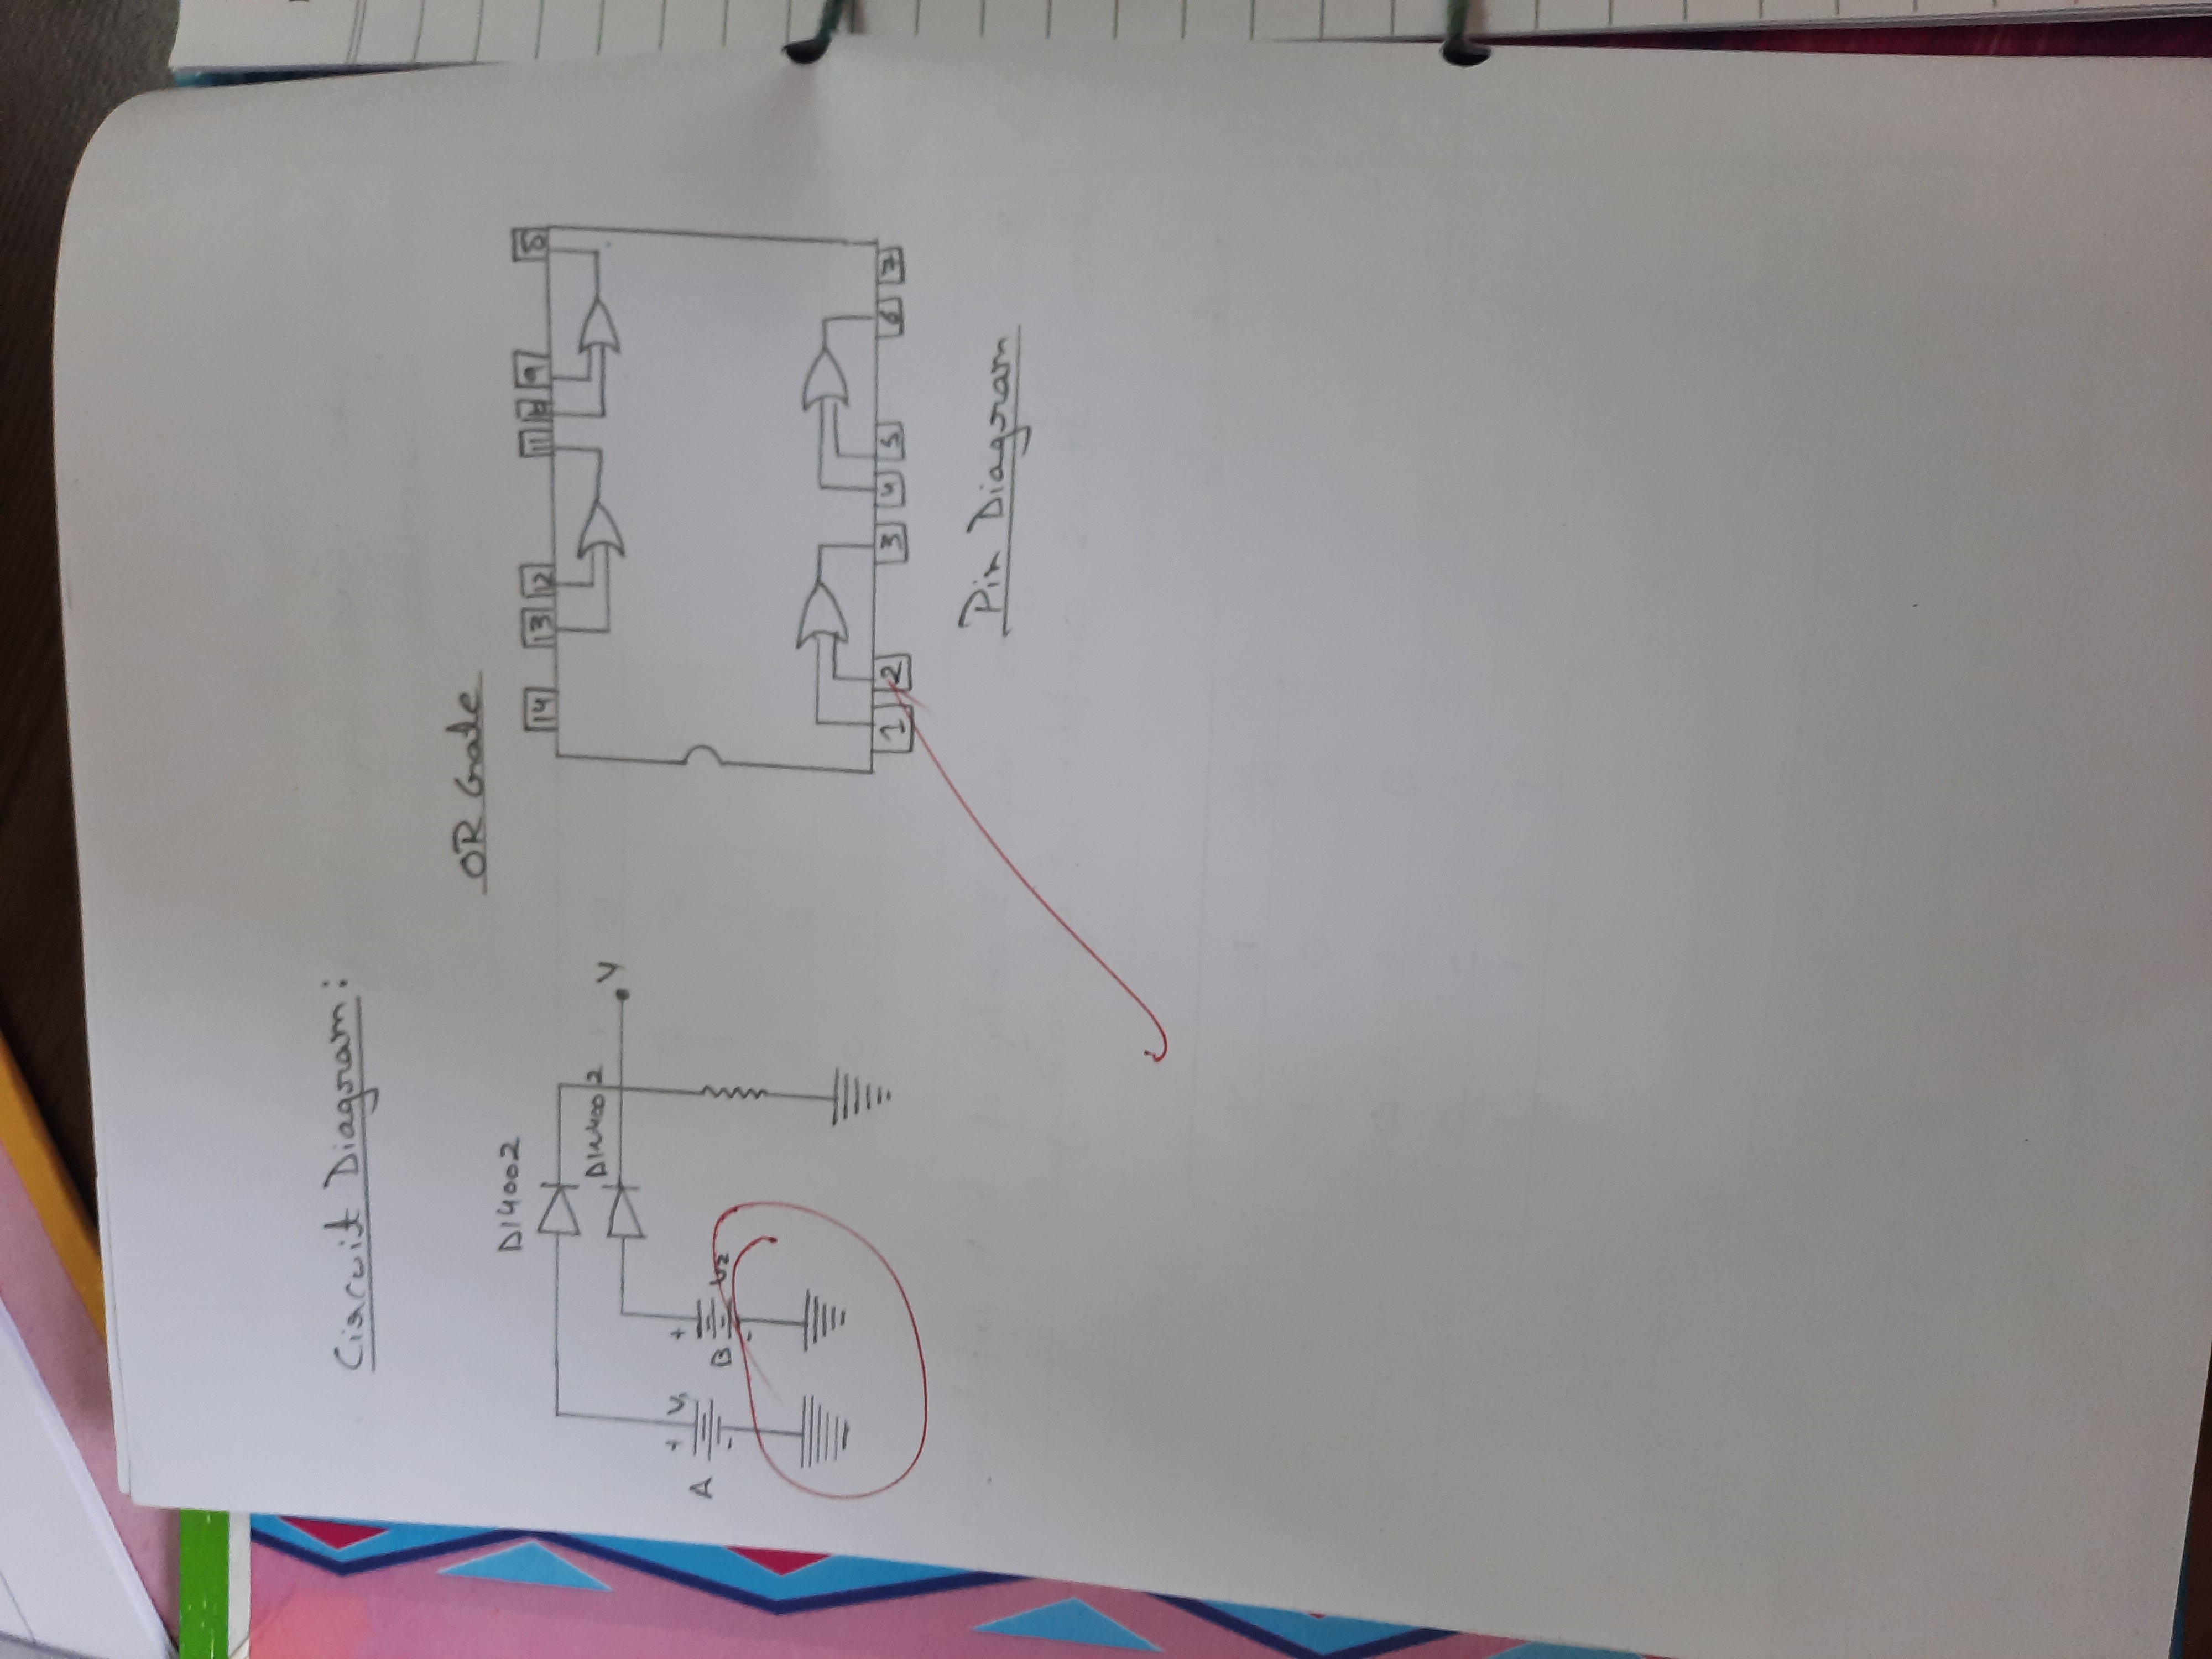 Circuit Diagram:
OR Gate
D14002
D1N4002
Y
+ V1
A
-
+
B V2
-
14 13 12 11 9 8
1 2 3 4 5 6 7
Pin Diagram